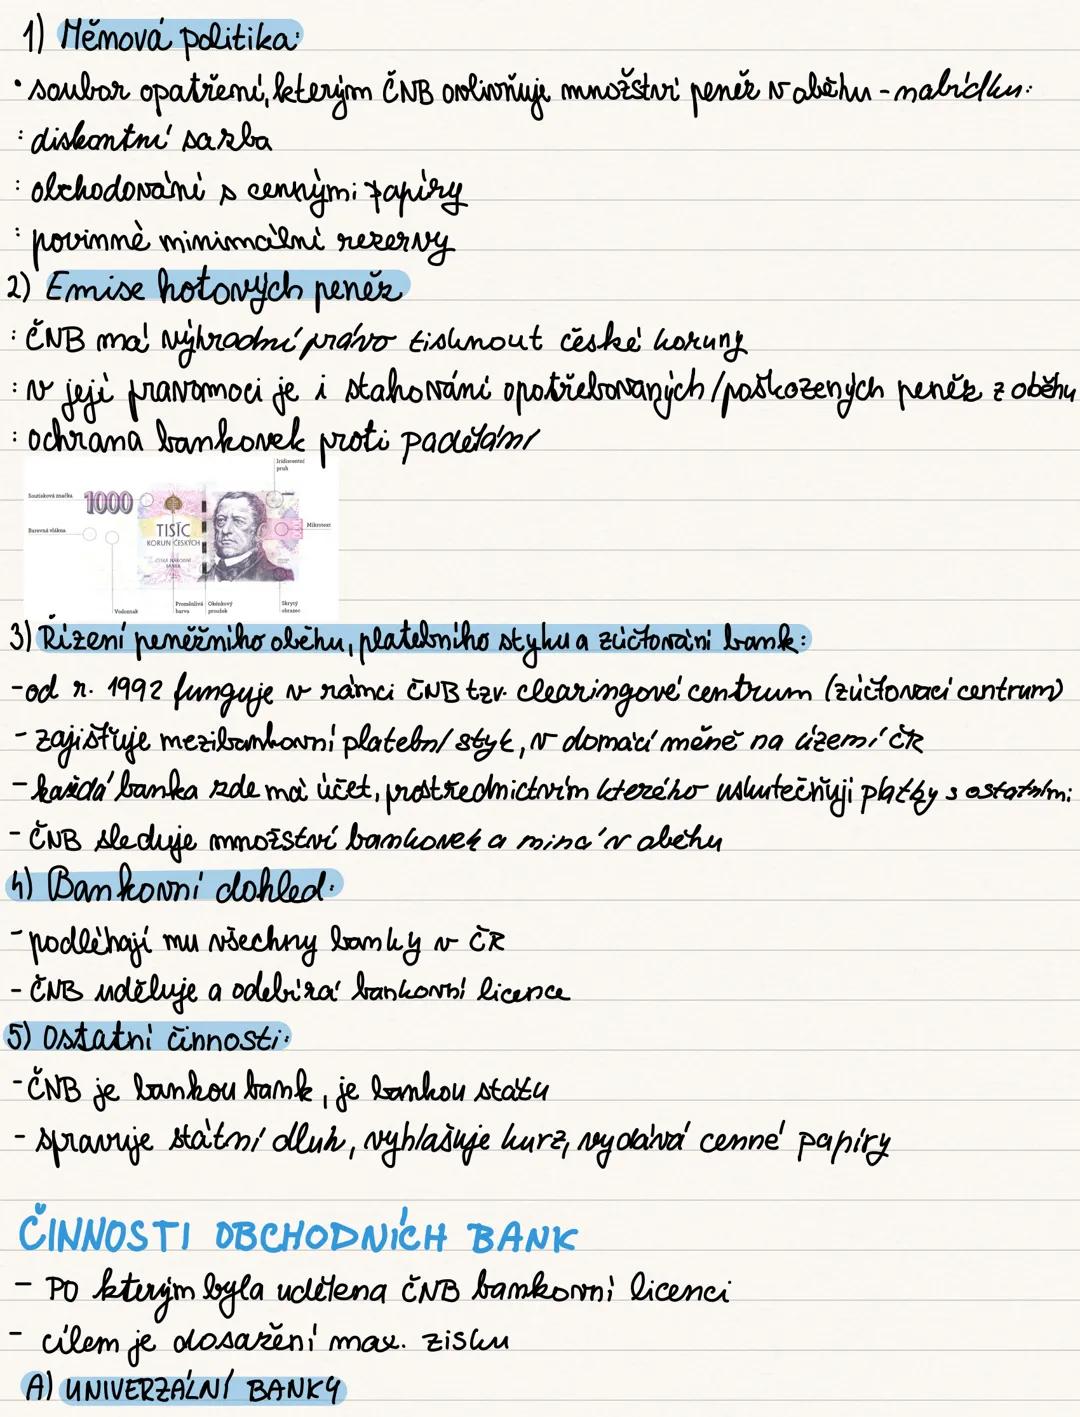 1) Měnová politika:
• soubor opatření, kterým ČNB ovlivňuje množství peněz v oběhu - nabídku:
: diskontní sazba
: obchodování s cennými papíry
: povinné minimální rezervy
2) Emise hotových peněz
: ČNB má výhradní právo tisknout české koruny
: v její pravomoci je i stahování opotřebovaných/poškozených peněz z oběhu
: ochrana bankovek proti padělání
Iridiscentní
pruh
Soutisková značka
1000
Barevná vlákna
TISÍC
KORUN ČESKÝCH
ČESKÁ NÁRODNÍ
BANKA
Mikrotext
Vodoznak
Proměnlivá
barva
Okénkový
proužek
Skrytý
obrazec
3) Řízení peněžního oběhu, platebního styku a zúčtování bank:
- od r. 1992 funguje v rámci ČNB tzv. clearingové centrum (zúčtovací centrum)
- zajišťuje mezibankovní platební styk, v domácí měně na území ČR
- každá banka zde má účet, prostřednictvím kterého uskutečňují platby s ostatními
- ČNB sleduje množství bankovek a mincí v oběhu
4) Bankovní dohled:
- podléhají mu všechny banky v ČR
- ČNB uděluje a odebírá bankovní licence
5) Ostatní činnosti:
- ČNB je bankou bank, je bankou státu
- spravuje státní dluh, vyhlašuje kurz, vydává cenné papíry
ČINNOSTI OBCHODNÍCH BANK
- PO kterým byla udělena ČNB bankovní licenci
- cílem je dosažení max. zisku
A) UNIVERZÁLNÍ BANKY